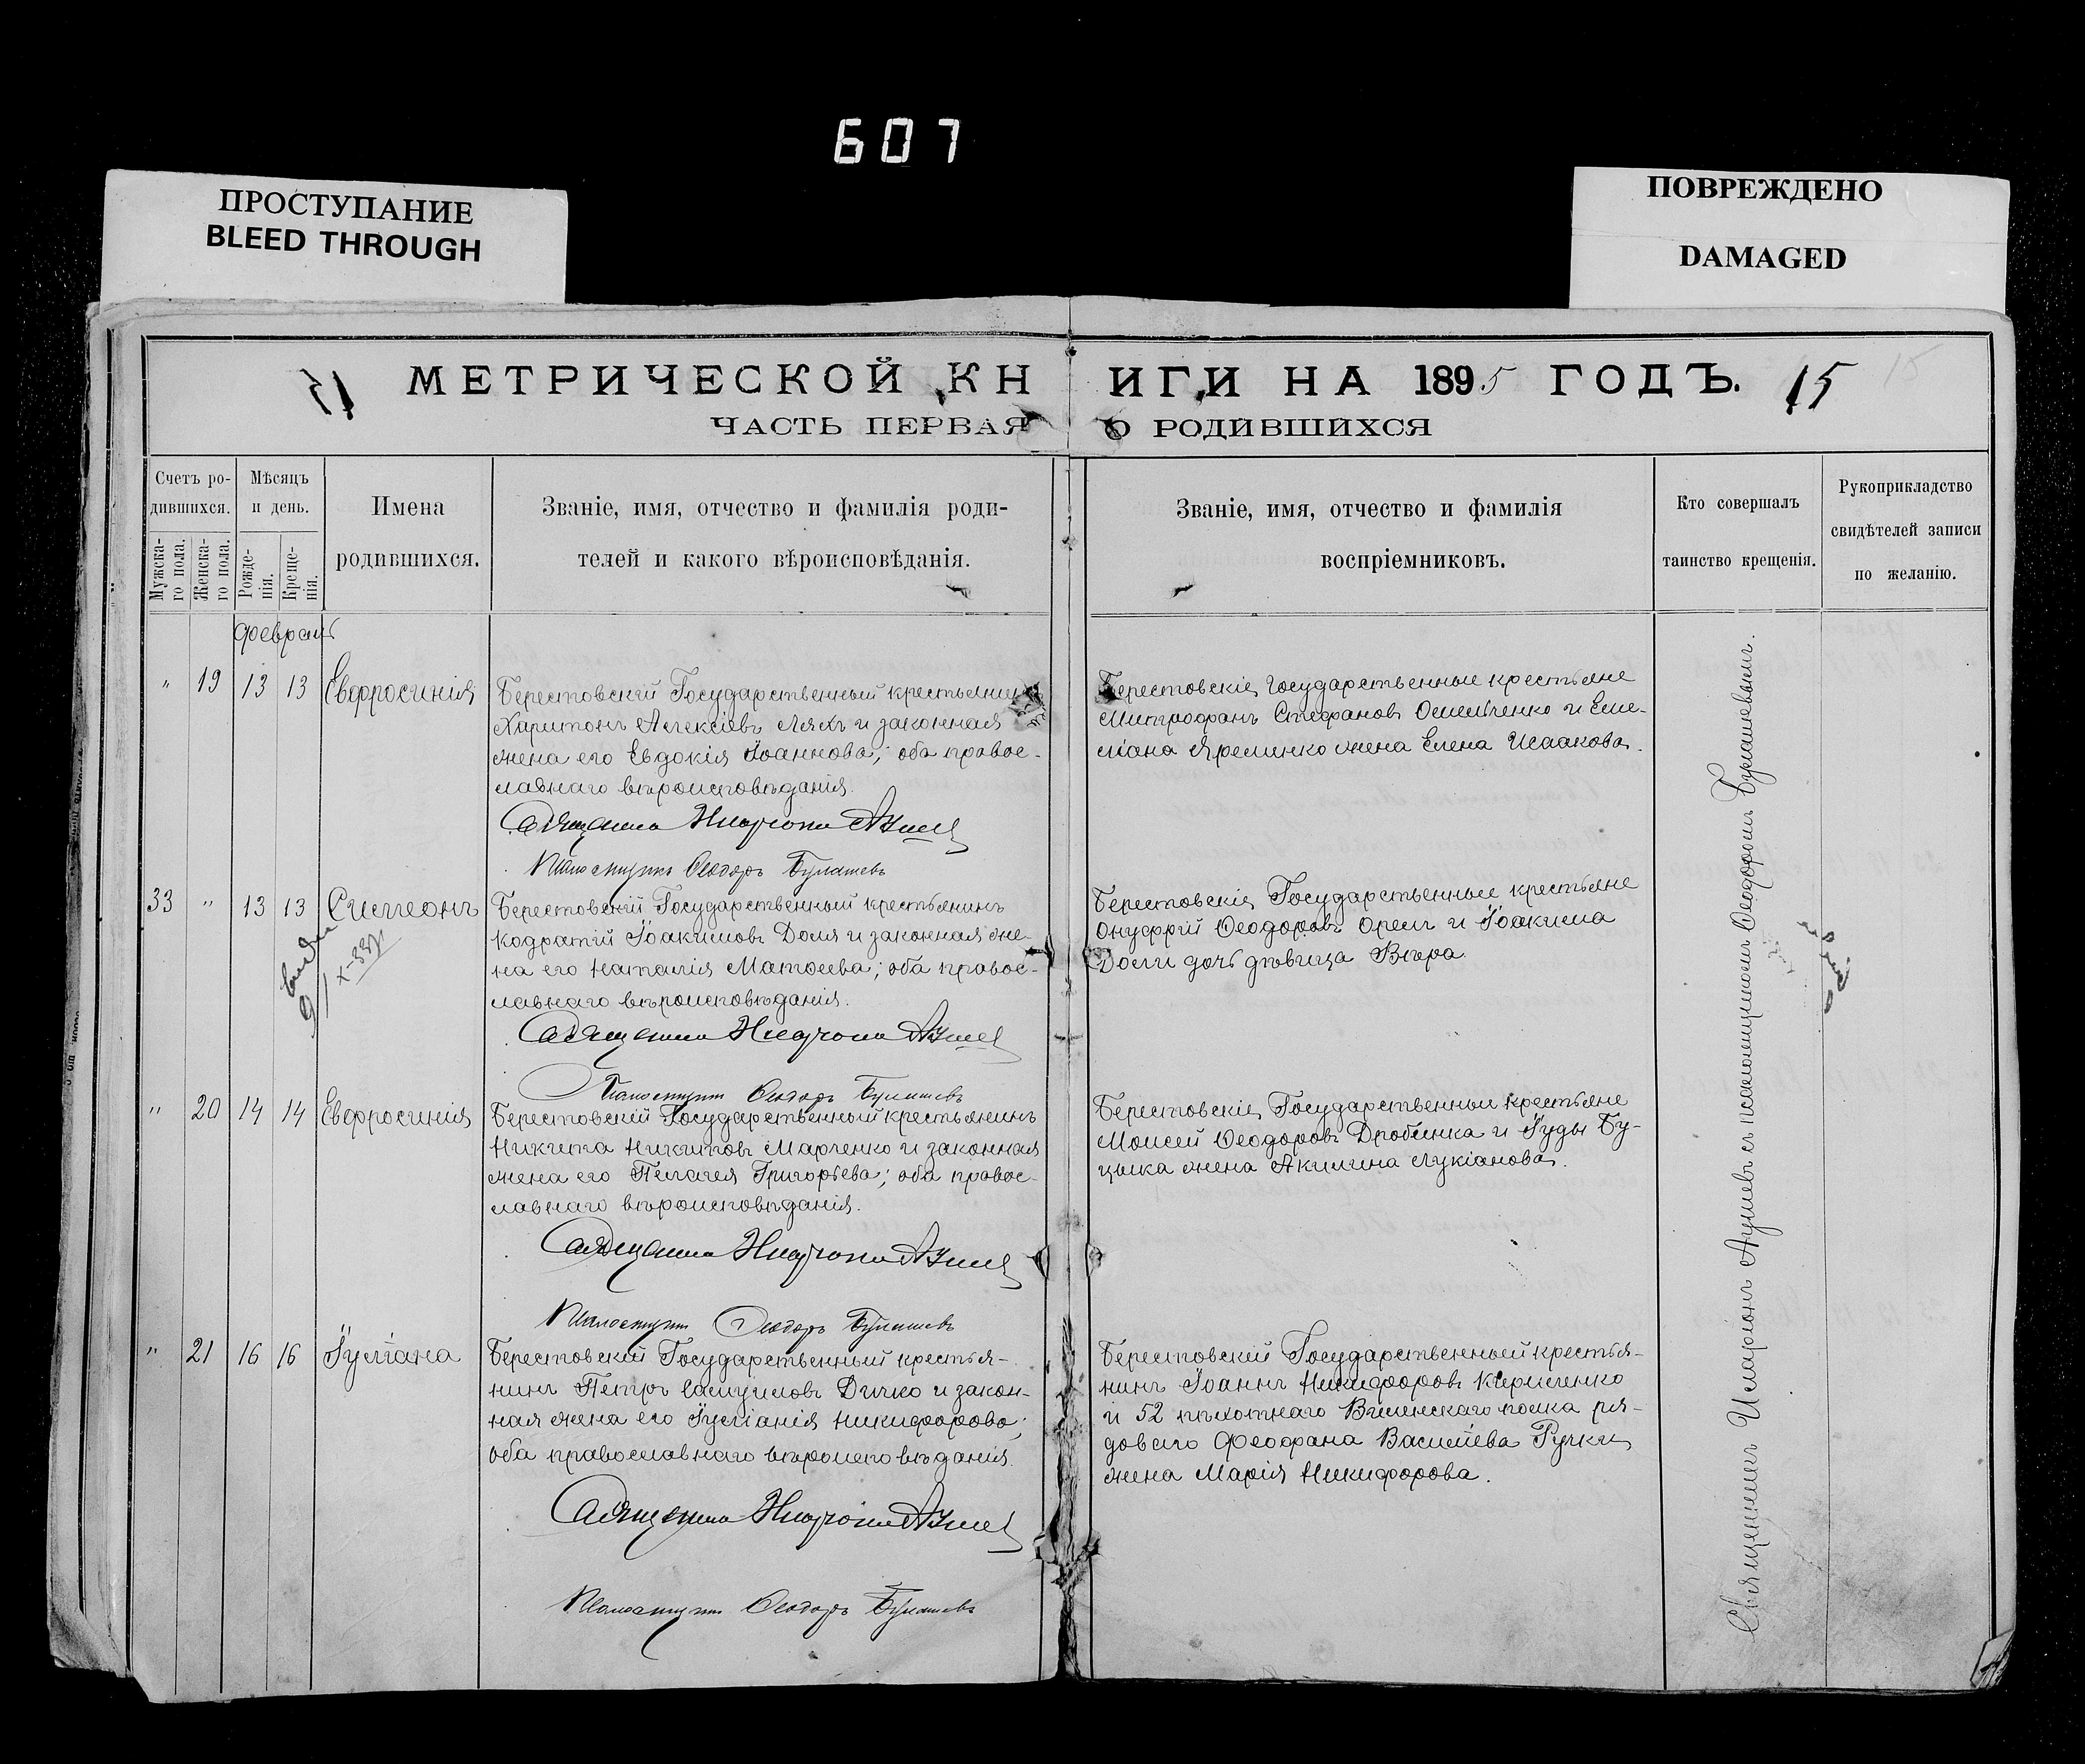 607
ПРОСТУПАНИЕ
BLEED THROUGH
ПОВРЕЖДЕНО
DAMAGED
МЕТРИЧЕСКОЙ КНИГИ НА 1895 ГОДЪ. 15
15
ЧАСТЬ ПЕРВАЯ О РОДИВШИХСЯ
Счетъ ро-
дившихся.
Мужска-
го пола.
Женска-
го пола.
Мѣсяцъ
и день.
Рожде-
нія.
Креще-
нія.
Имена
родившихся.
Званіе, имя, отчество и фамилія роди-
телей и какого вѣроисповѣданія.
Званіе, имя, отчество и фамилія
воспріемниковъ.
Кто совершалъ
таинство крещенія.
Рукоприкладство
свидѣтелей записи
по желанію.
Февраль
" 19 13 13 Евфросинія
Берестовскій Государственный крестьянинъ
Харитонъ Алексіевъ Ляхъ и законная
жена его Евдокія Іоаннова; оба правос-
лавнаго вѣроисповѣданія.
Священникъ Иларіонъ
Псаломщикъ Ѳеодоръ Булашевъ
Берестовскіе Государственные крестьяне
Митрофанъ Стефановъ и Еме-
ліана Яременко жена Елена Исаакова.
33 " 13 13 Симеонъ
Берестовскій Государственный крестьянинъ
Кодратій Іоакимовъ Доля и законная же-
на его Наталія Матѳеева; оба правос-
лавнаго вѣроисповѣданія.
Священникъ Иларіонъ
Псаломщикъ Ѳеодоръ Булашевъ
Берестовскіе Государственные крестьяне
Онуфрій Ѳеодоровъ Орелъ и Іоакима
Доли дочь дѣвица Вѣра
" 20 14 14 Евфросинія
Берестовскій Государственный крестьянинъ
Никита Никитовъ Марченко и законная
жена его Пелагея Григорьева; оба правос-
лавнаго вѣроисповѣданія.
Священникъ Иларіонъ
Псаломщикъ Ѳеодоръ Булашевъ
Берестовскіе Государственные крестьяне
Моисей Ѳеодоровъ и Іуды Бу-
цыка жена Акилина Лукіанова.
" 21 16 16 Іуліана
Берестовскій Государственный крестья-
нинъ Петръ Самуиловъ Дичко и закон-
ная жена его Іуліанія Никифорова;
оба православнаго вѣроисповѣданія.
Священникъ Иларіонъ
Псаломщикъ Ѳеодоръ Булашевъ
Берестовскій Государственный крестья-
нинъ Іоаннъ Никифоровъ Кириченко
и 52 пѣхотнаго Виленскаго полка ря-
доваго Феофана Васильева Ручки
жена Марія Никифорова.
Священникъ Иларіонъ съ псаломщикомъ Ѳеодоромъ Булашевымъ.